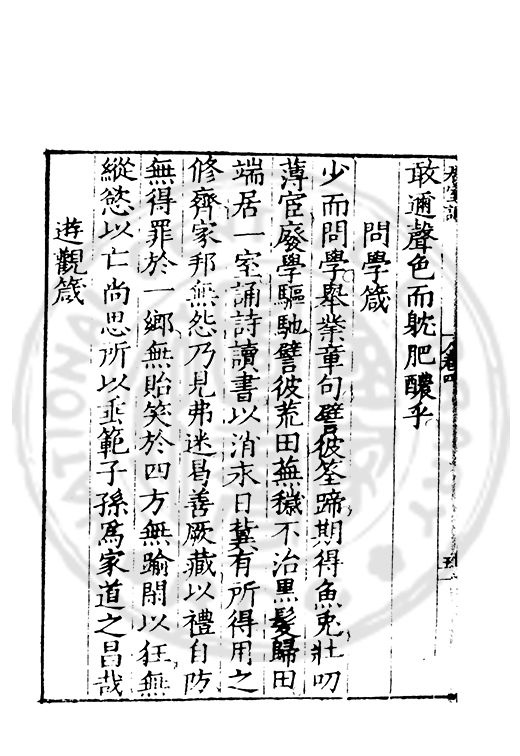 敢邇聲色而躭肥醲乎
問學箴
少而問學舉業章句譬彼筌蹄期得魚兎壯叨
薄宦廢學驅馳譬彼荒田蕪穢不治黒髮歸田
端居一室誦詩讀書以消永日冀有所得用之
修齊家邦無怨乃見弗迷曷善厥藏以禮自防
無得罪於一鄉無貽笑於四方無踰閑以狂無
縱慾以亡尚思所以垂範子孫爲家道之昌哉
遊觀箴